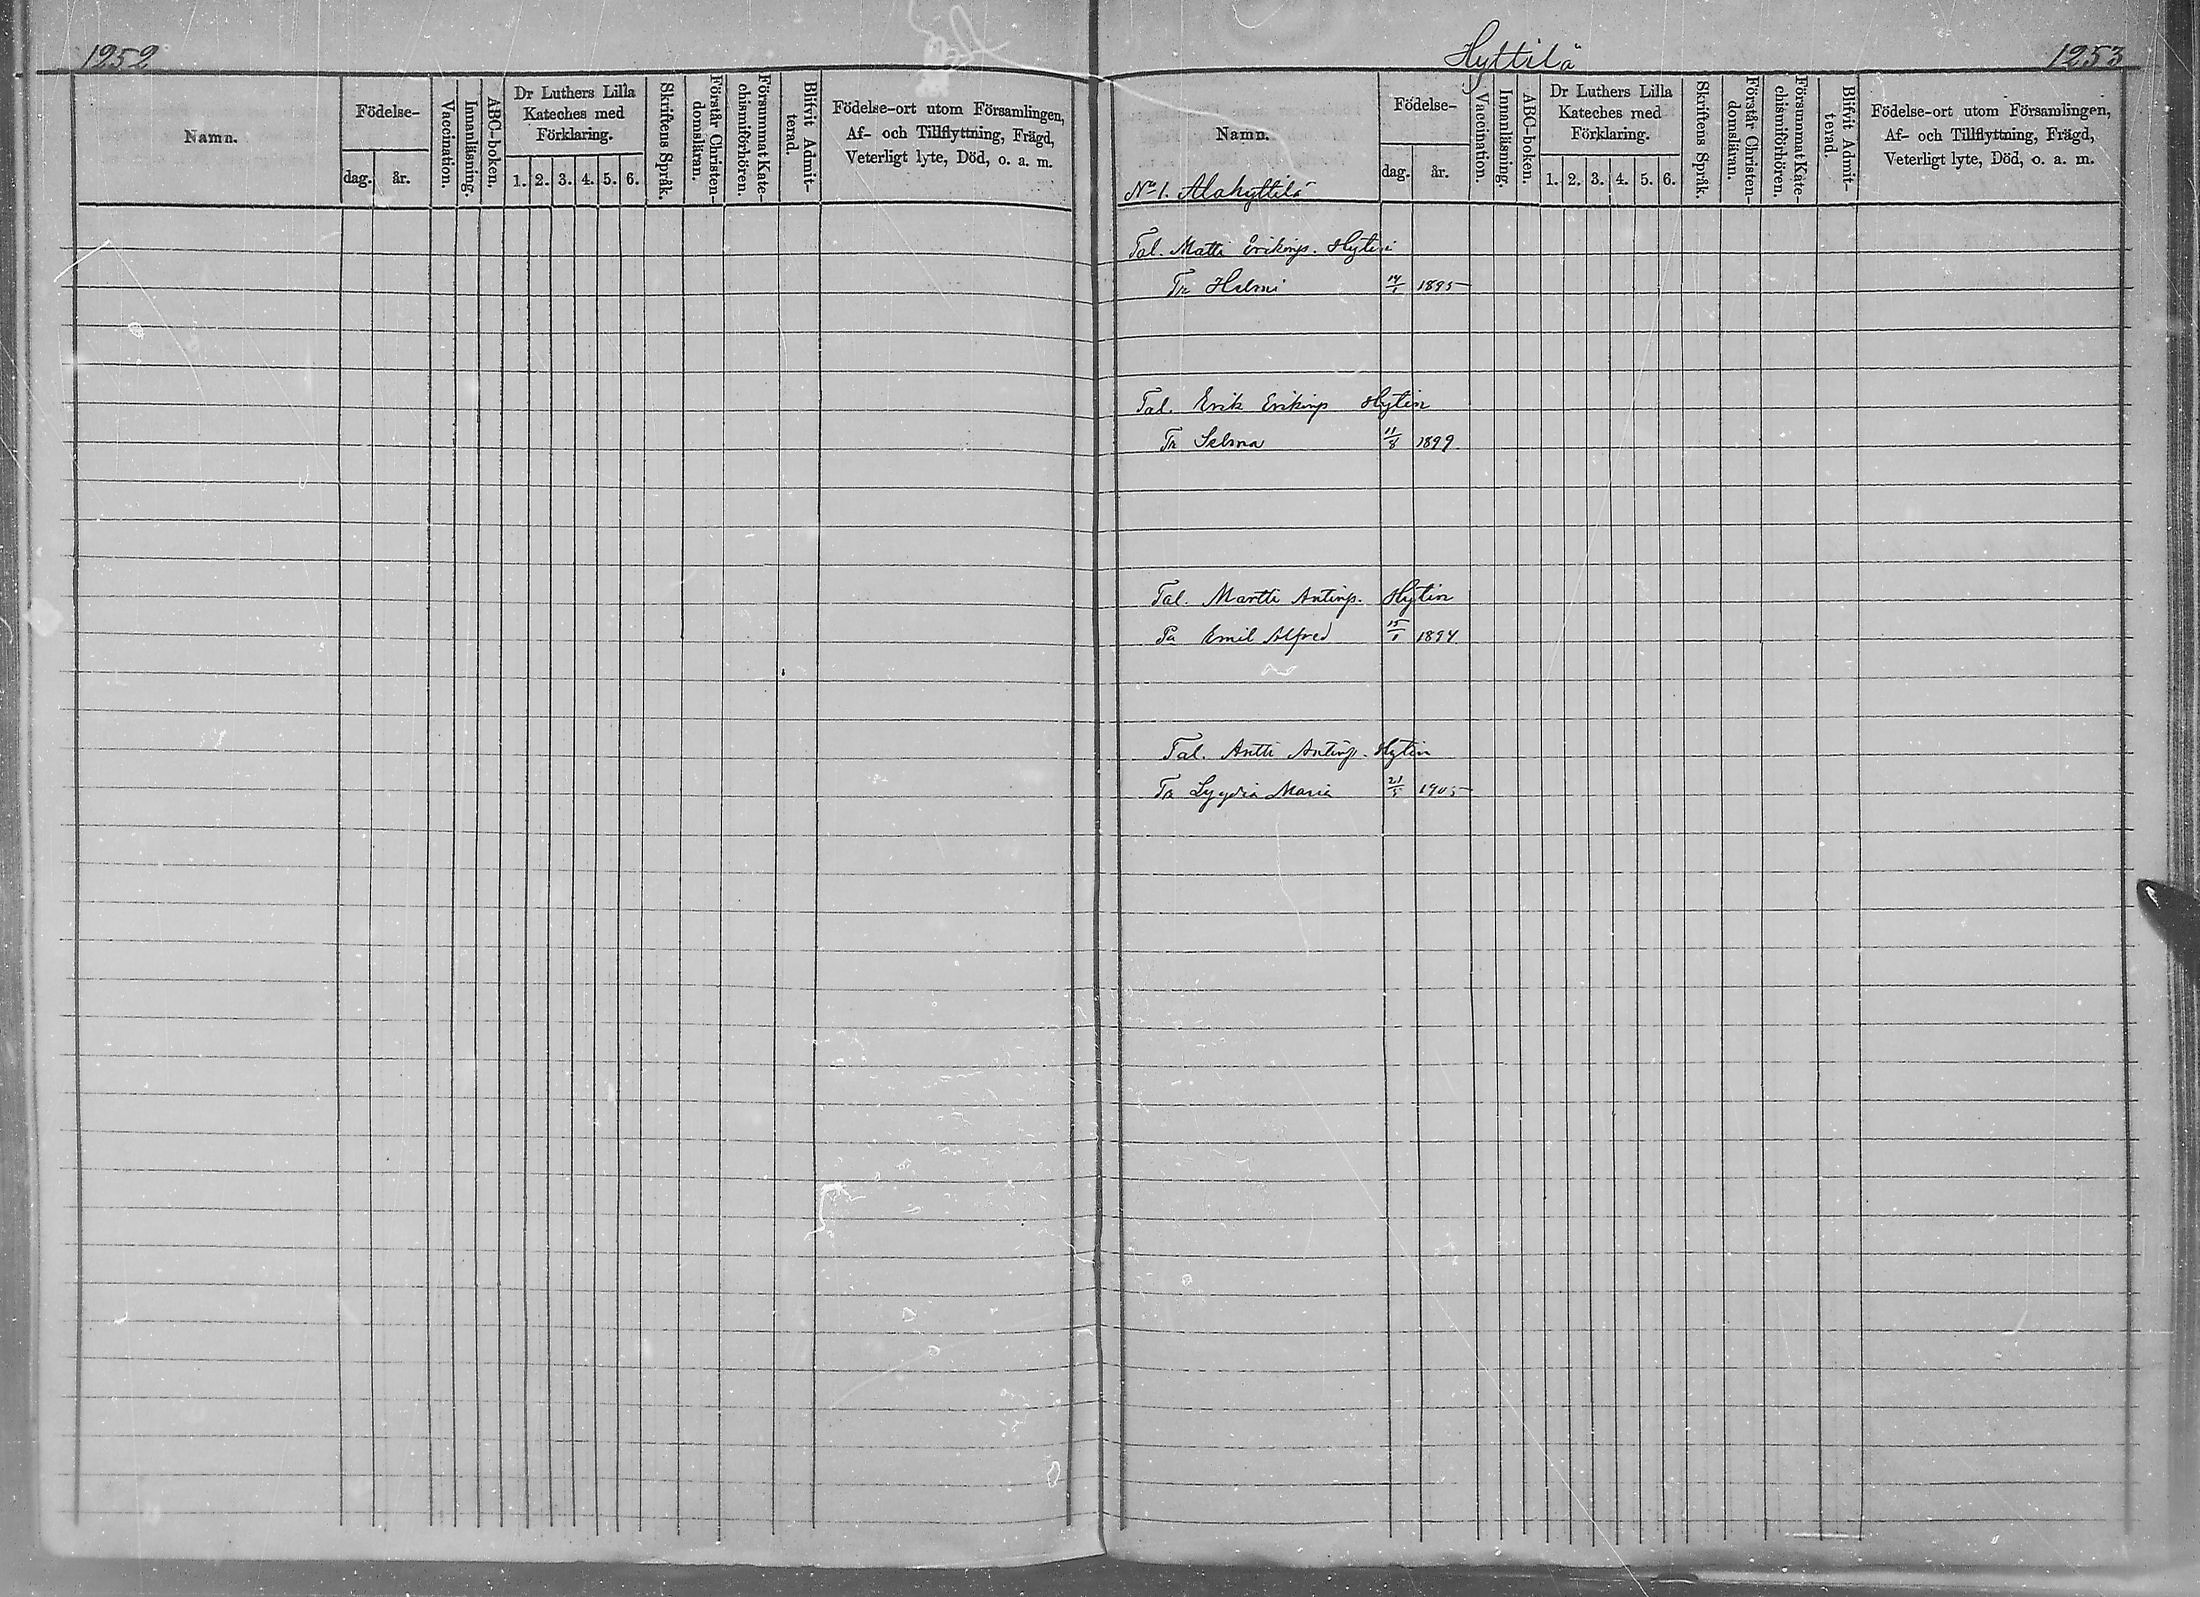 1252
Namn.
Födelse-
dag.
år.
Vaccination.
Innanläsning.
ABC-boken.
Dr Luthers Lilla
Kateches med
Förklaring.
1. 2. 3. 4. 5. 6.
Skriftens Språk.
Förstår Christen-
domsläran.
Försummat Kate-
chismiförhören.
Blifvit Admit-
terad.
Födelse-ort utom Församlingen,
Af- och Tillflyttning, Frägd,
Veterligt lyte, Död, o. a. m.
Hyttilä
1253
Namn.
No 1. Alahyttilä
Födelse-
dag.
år.
Vaccination.
Innanläsning.
ABC-boken.
Dr Luthers Lilla
Kateches med
Förklaring.
1. 2. 3. 4. 5. 6.
Skriftens Språk.
Förstår Christen-
domsläran.
Försummat Kate-
chismiförhören.
Blifvit Admit-
terad.
Födelse-ort utom Församlingen,
Af- och Tillflyttning, Frägd,
Veterligt lyte, Död, o. a. m.
Tal. Matti Erikinp.
Tr Helmi 14/1 1895
Tal. Erik Erikinp Hytin
Tr Selma 11/8 1899
Tal. Martti Antinp. Hytin
Pa Emil Alfred 15/1 1894
Tal. Antti Antinp. Hytin
Tr Lyydia Maria 21/5 1905